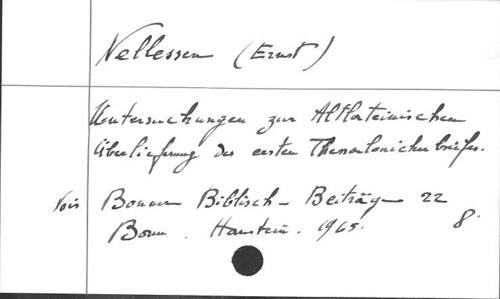 Nellessen (Ernst)
Untersuchungen zur Altlateinischen
Überlieferung des ersten Thessalonicherbriefes.
Vois Bonner Biblisch- Beiträge 22
Bonn. Hanstein. 1965. 8.